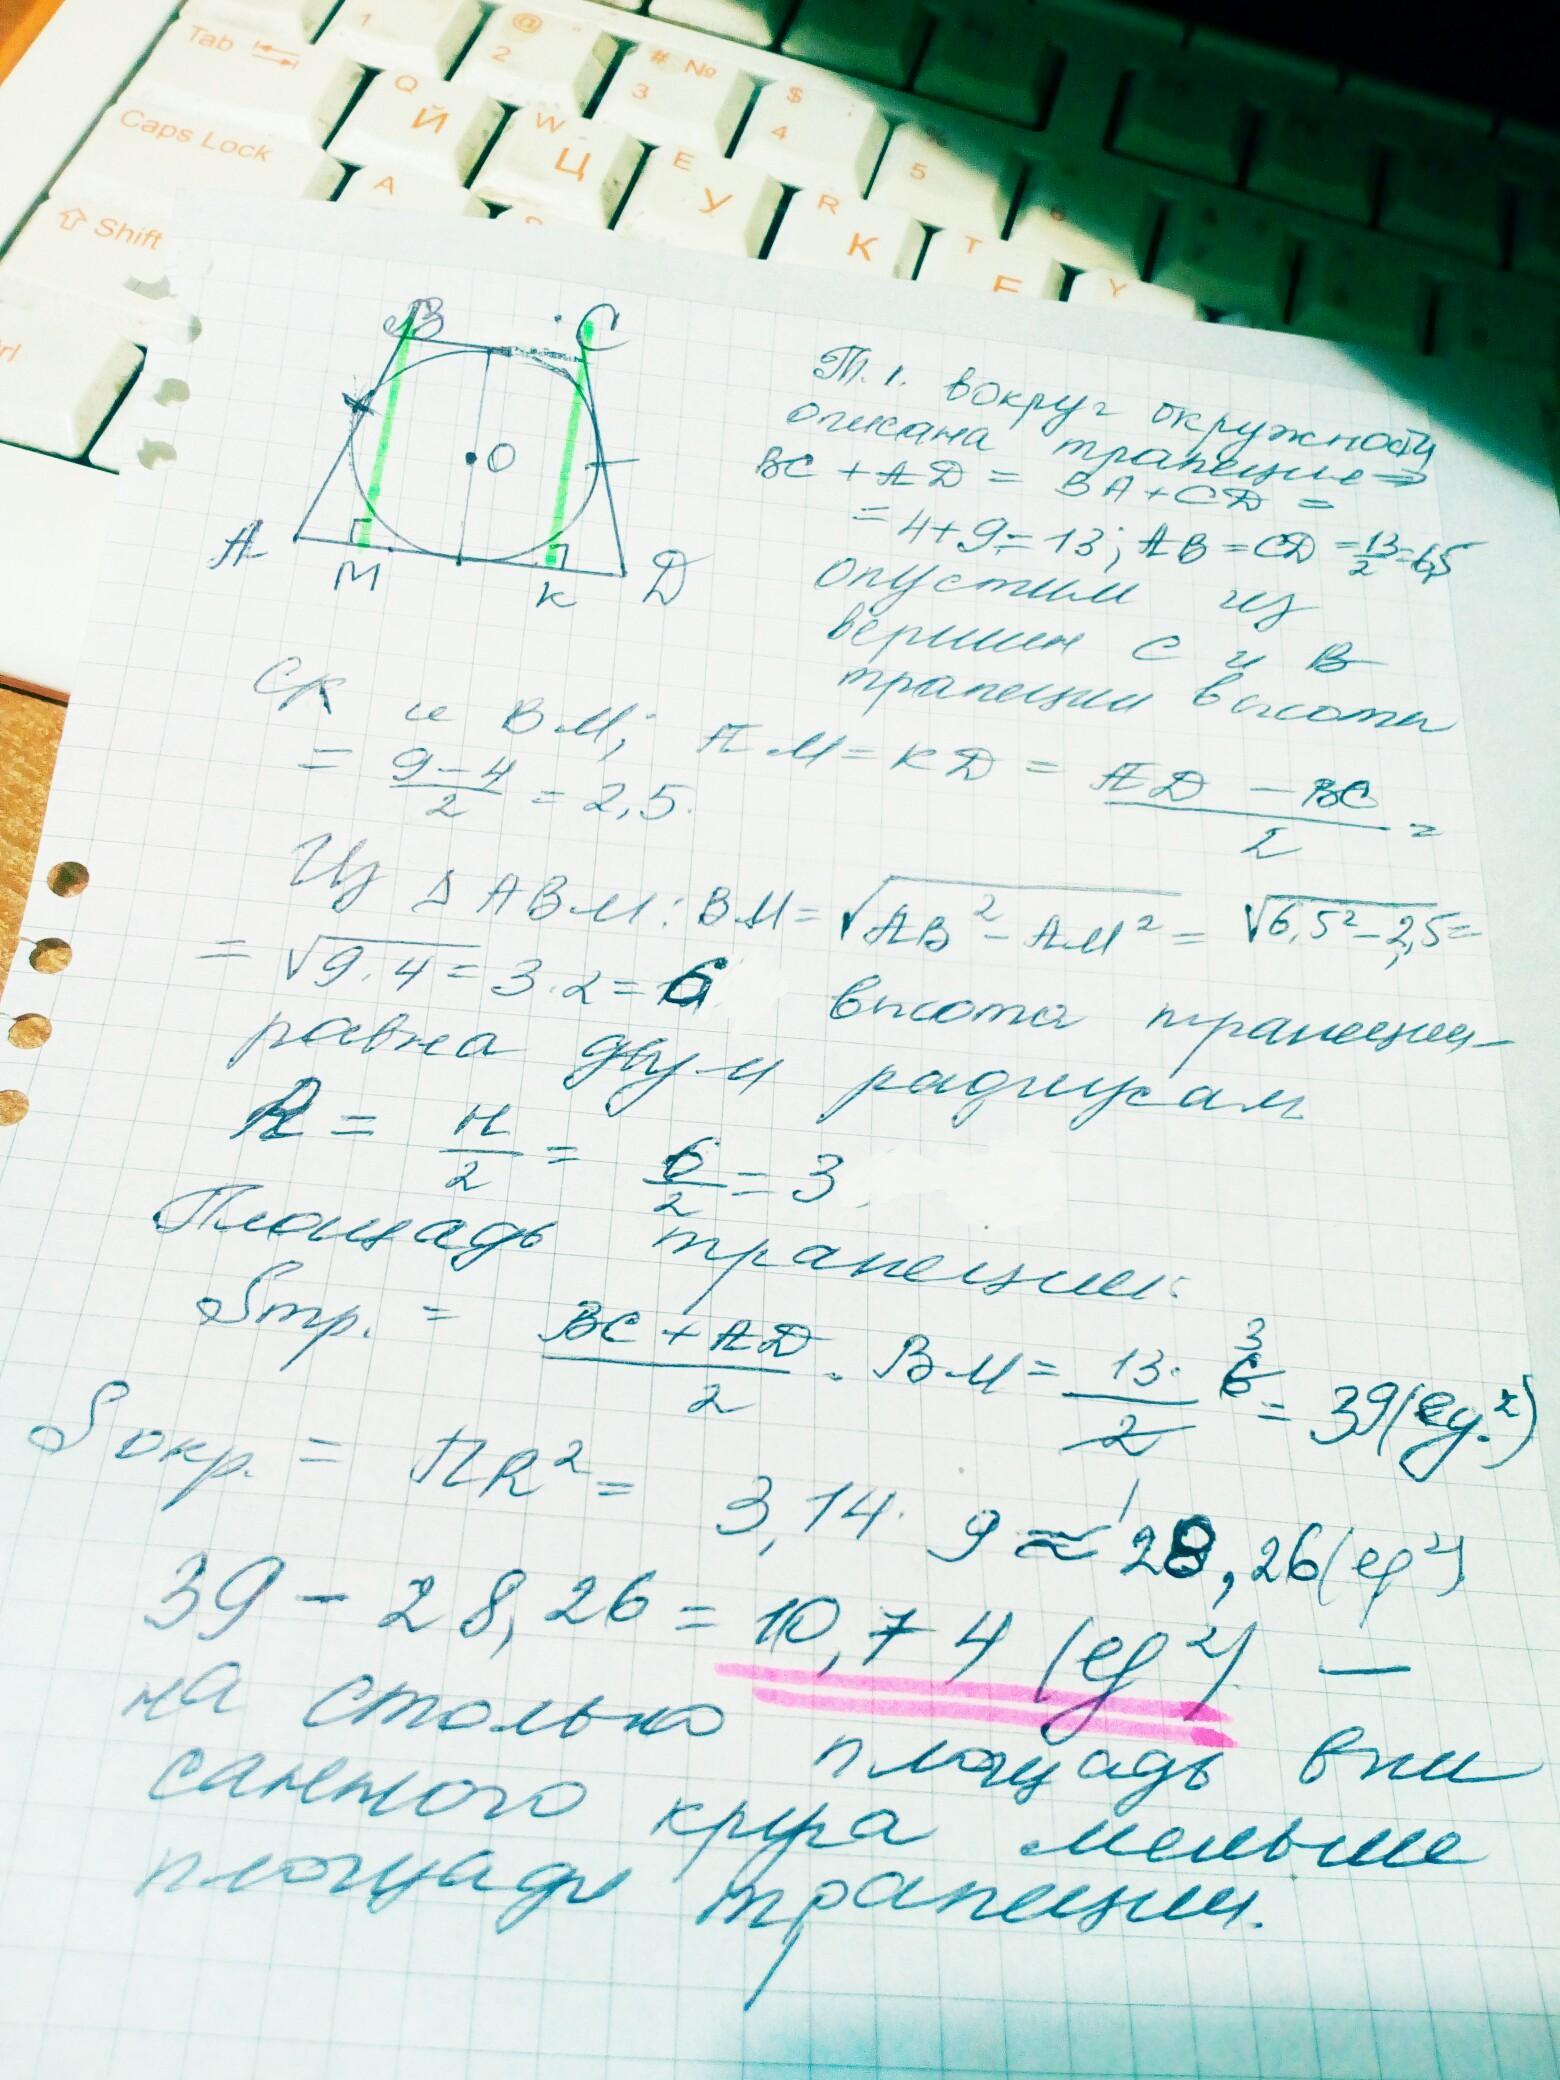 Tab
1
@
2
# №
3
$
4
5
6
Caps Lock
Q
Й
W
Ц
E
У
R
К
T
Е
Y
Shift
A
rl
В С
О
А М К D
Т.к. вокруг окружности
описана трапеция ⇒
BC + AD = BA + CD =
= 4+9=13; AB = CD = 13/2 = 6,5
опустим из
вершин C и B
трапеции высоты
CK и BM; AM = KD = (AD - BC)/2 =
= (9-4)/2 = 2,5.
Из Δ ABM: BM = √(AB² - AM²) = √(6,5² - 2,5 =
= √(9·4) = 3·2 = 6 высота трапеции
равна двум радиусам
R = H/2 = 6/2 = 3.
Площадь трапеции:
Sтр. = (BC + AD)/2 · BM = 13·6/2 = 39 (ед.²)
3
1
Sокр. = πR² = 3,14 · 9 ≈ 28,26 (ед²)
39 - 28,26 = 10,74 (ед²) —
на столько площадь впи
санного круга меньше
площади трапеции.